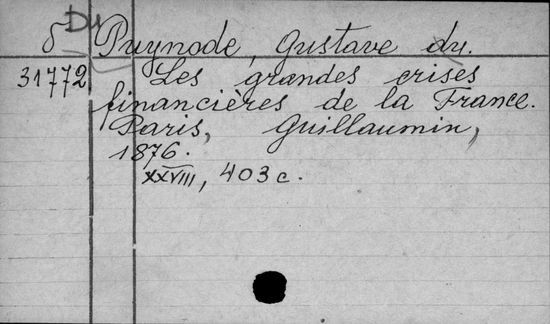 б Du Puynode, Gustave du.
31772 Les grandes crises
financières de la France.
Paris, Guillaumin,
1876.
XXVIII, 403 c.